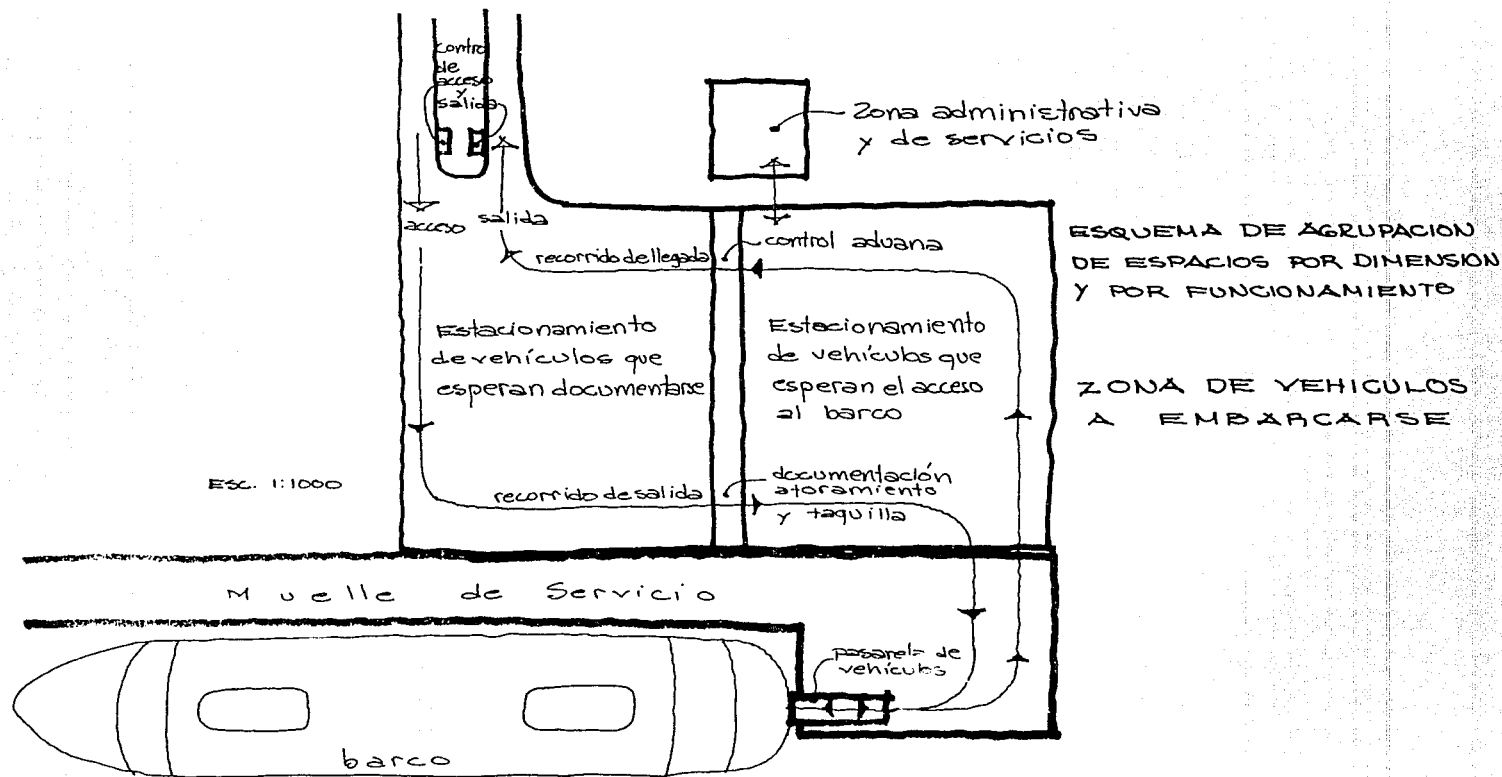 control
de
acceso
y
salida
Zona administrativa
y de servicios
acceso
salida
recorrido de llegada
control aduana
ESQUEMA DE AGRUPACION
DE ESPACIOS POR DIMENSION
Y POR FUNCIONAMIENTO
Estacionamiento
de vehículos que
esperan documentarse
Estacionamiento
de vehículos que
esperan el acceso
al barco
ZONA DE VEHICULOS
A EMBARCARSE
ESC. 1:1000
recorrido de salida
documentación
aforamiento
y taquilla
Muelle de Servicio
pasarela de
vehículos
barco